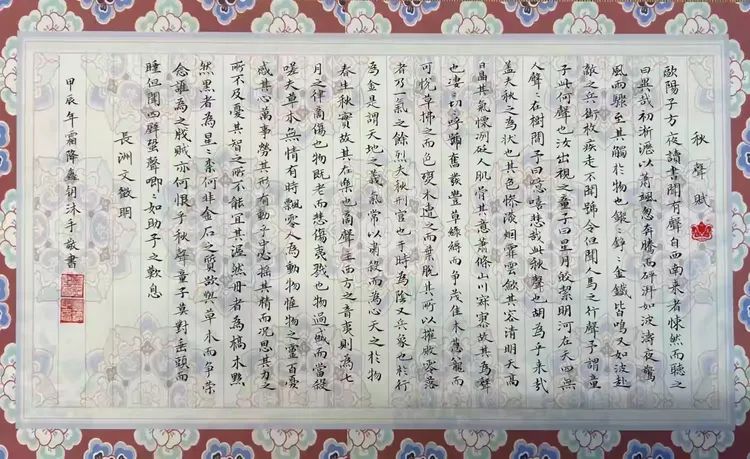 秋聲賦
歐陽子方夜讀書聞有聲自西南來者悚然而聽之
曰異哉初淅瀝以蕭颯忽奔騰而砰湃如波濤夜驚
風雨驟至其觸於物也鏦〻錚〻金鐵皆鳴又如波赴
敵之兵銜枚疾走不聞號令但聞人馬之行聲予謂童
子此何聲也汝出視之童子曰星月皎潔明河在天四無
人聲〻在樹間予曰噫嘻悲哉此秋聲也胡為乎來哉
蓋夫秋之為狀也其色慘淡烟霏雲斂其容清明天高
日晶其氣慄冽砭人肌骨其意蕭條山川寂寥故其為聲
也淒〻切〻呼號奮發豐草綠縟而爭茂佳木蔥籠而
可悅草拂之而色變木遭之而葉脫其所以摧敗零落
者乃氣之餘烈夫秋刑官也于時為陰又兵象也於行
為金是謂天地之義氣常以肅殺而為心天之於物
春生秋實故其在樂也商聲主西方之音夷則為七
月之律商傷也物既老而悲傷夷戮也物過盛而當殺
嗟夫草木無情有時飄零人為動物惟物之靈百憂
感其心萬事勞其形有動于中必搖其精而況思其力之
所不及憂其智之所不能宜其渥然丹者為槁木黟
然黑者為星〻奈何非金石之質欲與草木而爭榮
念誰為之戕賊亦何恨乎秋聲童子莫對垂頭而
睡但聞四壁蟲聲唧〻如助予之歎息
長洲文徵明
甲辰年霜降鑫钥沐手敬書